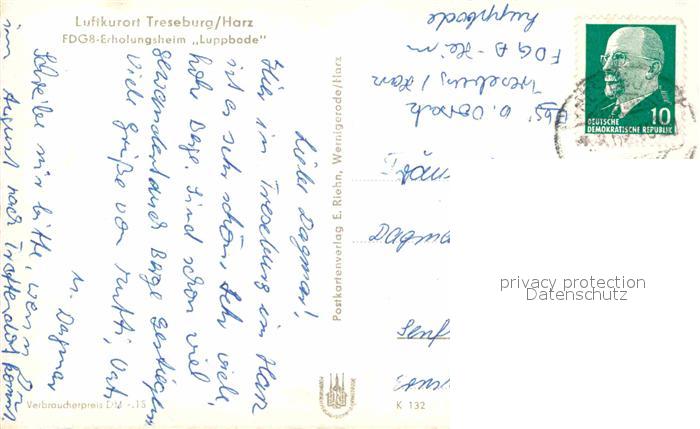 Luftkurort Treseburg/Harz
FDGB-Erholungsheim „Luppbode"
Liebe Dagmar!
Hier in Treseburg im Harz
ist es sehr schön. Sehr viele,
hohe Berge. Sind schon viel
gewandert und Berge gestiegen.
Viele Grüße von Mutti, Vati
u. Dagmar
Schreibe mir bitte, wenn Du
im August nach
kommst.
Postkartenverlag E. Riehn, Wernigerode/Harz
Abs. D.
Treseburg / Harz
FDGB-Heim
Luppbode
DEUTSCHE
DEMOKRATISCHE REPUBLIK
10
Dagma
Senf
privacy protection
Datenschutz
Verbraucherpreis DM -.15
K 132